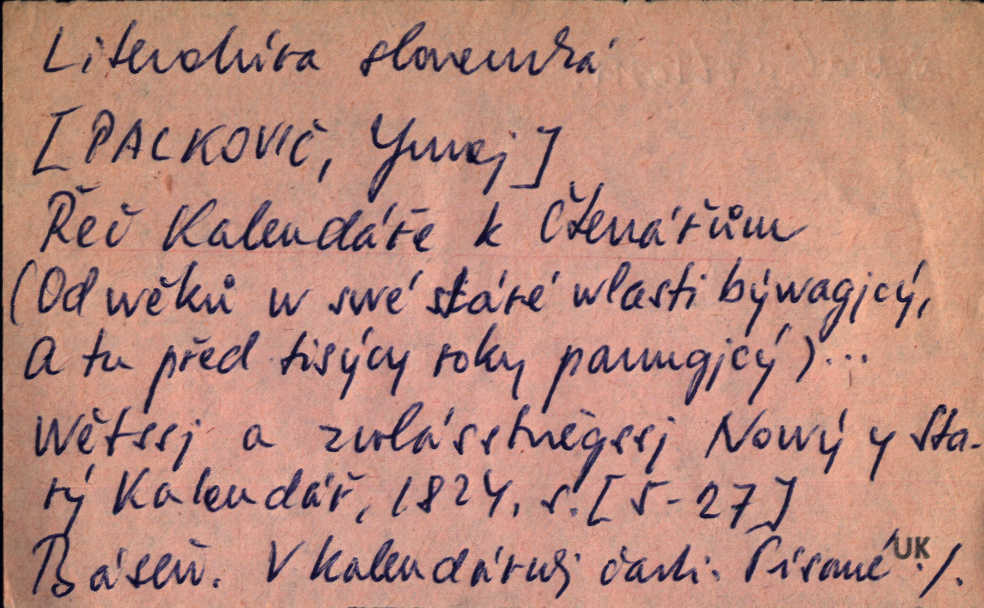 Literatúra slovenská
[PALKOVIČ, Juraj]
Řeč Kalendáře k Čtenářům
(Od wěků w swé stáré wlasti býwagjcý,
A tu před tisýcy roky panugjcý)...
Wětssj a zwlásstněgssj Nowý y Sta-
rý Kalendář, 1824. s. [5-27]
Báseň. V kalendárnej časti. Písané ./.
UK